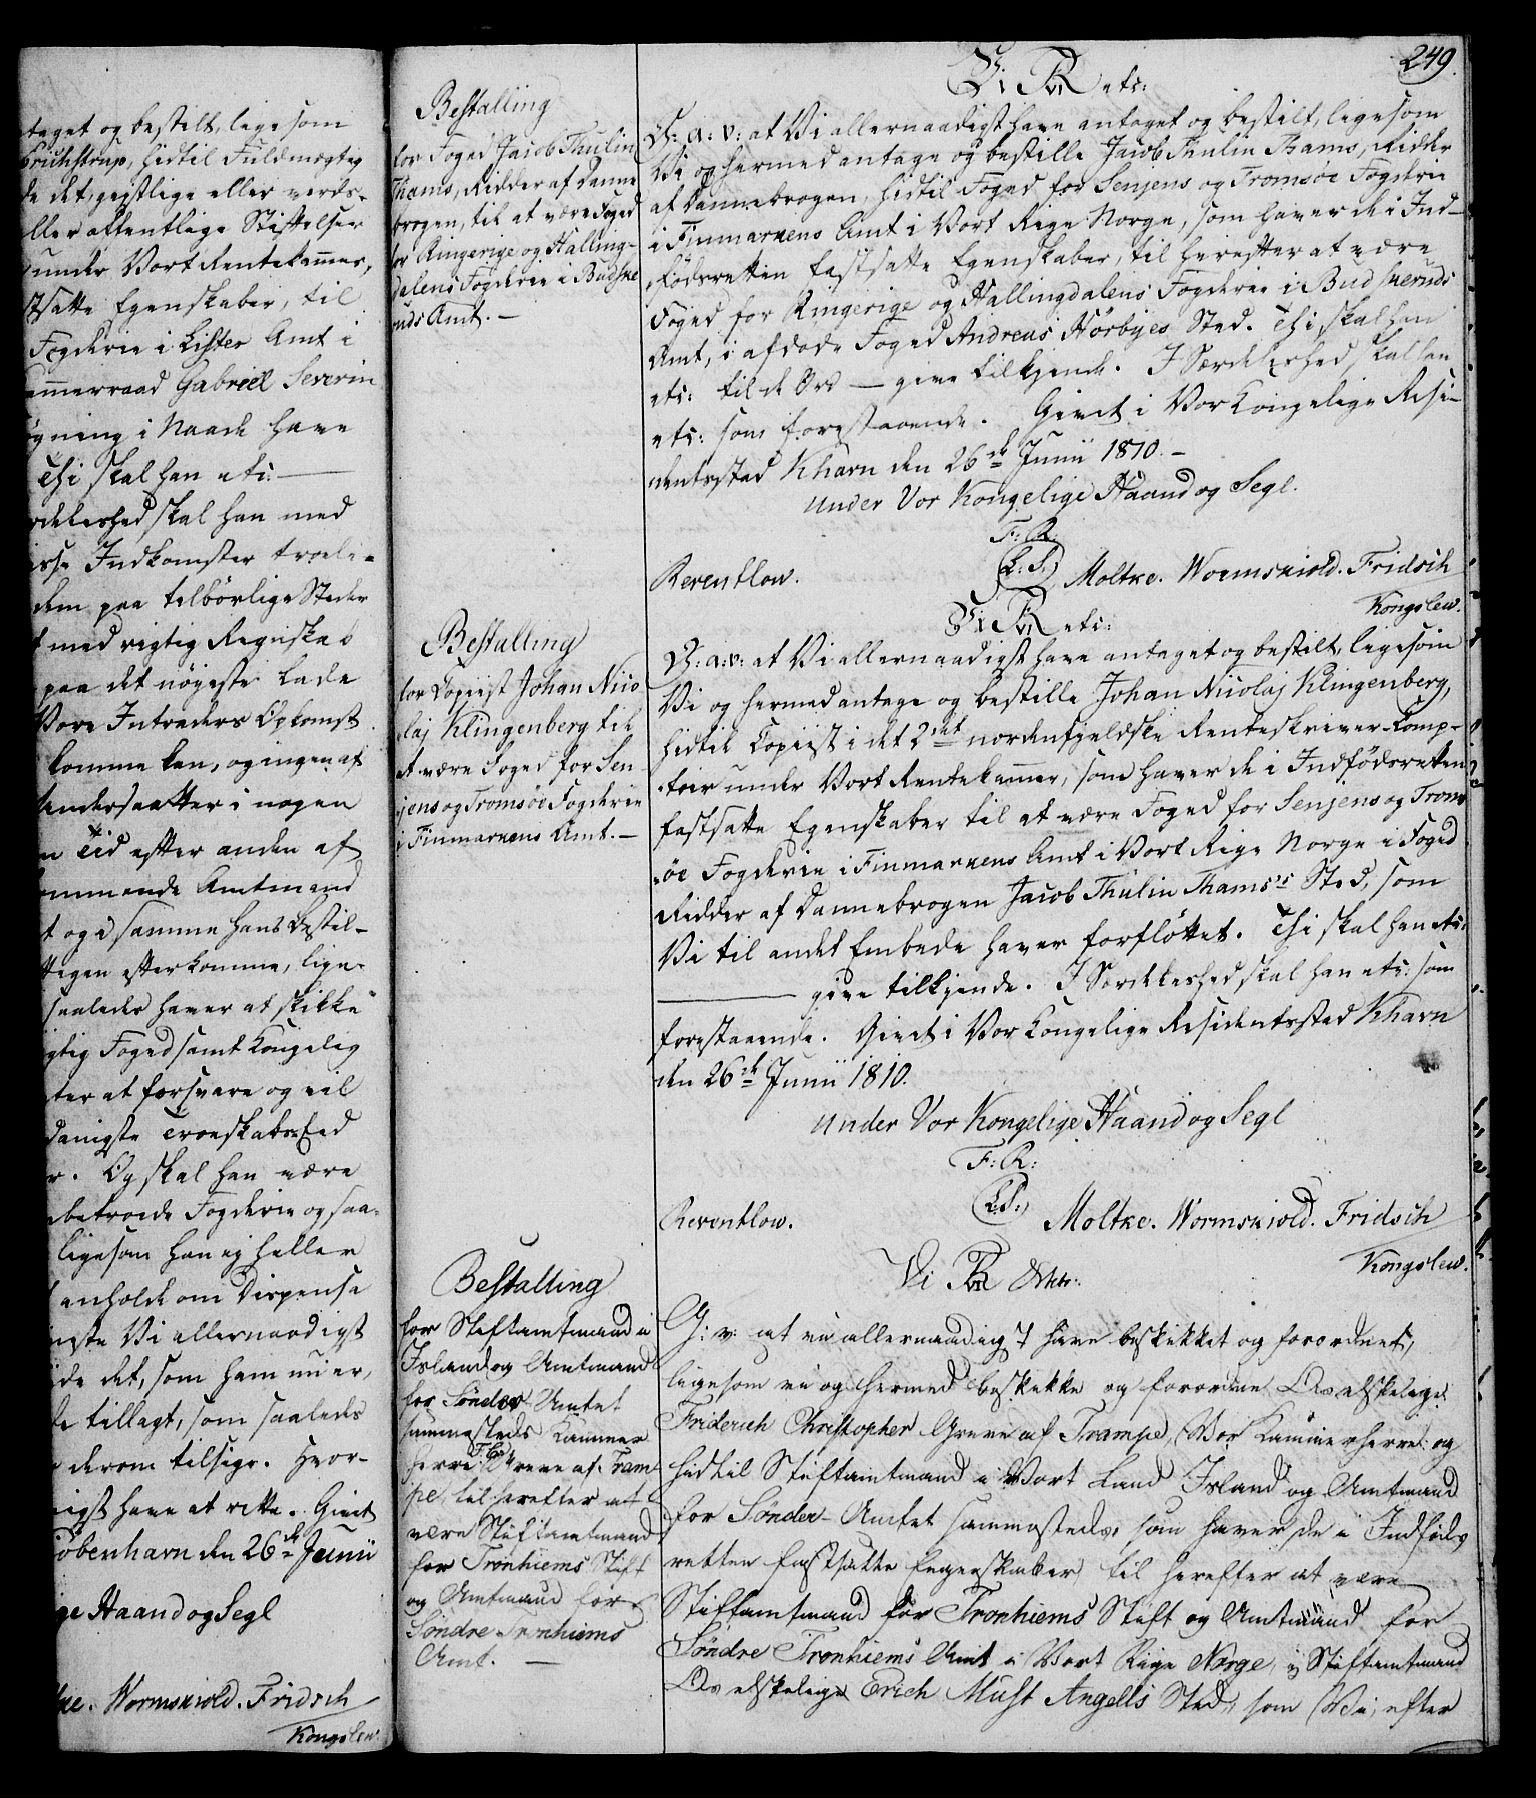 taget og bestilt, ligesom
Erichstrup, hidtil Fuldmægtig
de det, geistlige eller verds-
eller offentlige Stiftelser
under Vort Rentekammer,
stsatte Egenskaber, til
Fogderie i Lister Amt i
ammerraad Gabriel Severin
gning i Naade have
Thi skal han etc:
rdeleshed skal han med
isse Indkomster troeli-
dem paa tilbörlige Steder
med rigtig Regnskab
paa det nöyeste lade
Vore Intraders Opkomst
komme kan, og ingen af
Undersaatter i nogen
n Tid efter anden af
ommende Amtmand
t og i samme hans Bestil-
tegen efterkomme, lige-
saaledes haver at skikke
gtig Foged samt Kongelig
ter at forsvare og vil
danigste Troeskabs Eed
r. Og skal han være
nbetroede Fogderie og saa-
ligesom han ej heller
anholde om Dispensa
nste Vi allernaadigst
yde det, som ham nu er,
de tillagt, som saaledes
derom tilsige. Hvor-
igst have at rette. Givet
Kiöbenhavn den 26de Junii
ge Haand og Segl
ke. Wormskiold. Fridsch
Kongslew.
249.
Bestalling
for Foged Jacob Thulin
Thams, Ridder af Danne
brogen, til at være Foged
for Ringerige og Halling-
dalens Fogderie i Budske
ruds Amt. —
Vi FR VI etc:
G: a: v: at Vi allernaadigst have antaget og bestilt, ligesom
Vi og hermed antage og bestille Jacob Thulin Thams, Ridder
af Dannebrogen, hidtil Foged for Senjens og Tromsöe Fogderie
i Finmarkens Amt i Vort Rige Norge, som haver de i Ind-
födsretten fastsatte Egenskaber, til herefter at være
Foged for Ringerige og Hallingdalens Fogderie i Budskeruds
Amt, i afdöde Foged Andreas Hörbyes Sted. Thi skal han
etc: til de Ord — give tilkjende. I Særdeleshed skal han
etc: som forestaaende. Givet i Vor Kongelige Resi-
dentsstad Khavn den 26de Junii 1810. —
Under Vor Kongelige Haand og Segl.
F: R:
(L: S.)
Reventlow. Moltke. Wormskiold. Fridsch
Kongslew.
Bestalling
for Copiist Johan Nico
laj Klingenberg til
at være Foged for Sen
jens og Tromsöe Fogderie
i Finmarkens Amt. —
Vi FR VI etc:
G: a: v: at Vi allernaadigst have antaget og bestilt, ligesom
Vi og hermed antage og bestille Johan Nicolaj Klingenberg,
hidtil Copiist i det 2det nordenfjeldske Renteskriver-Comp-
toir under Vort Rentekammer, som haver de i Indfödsretten
fastsatte Egenskaber til at være Foged for Senjens og Troms
öe Fogderie i Finmarkens Amt i Vort Rige Norge i Foged
Ridder af Dannebrogen Jacob Thulin Thams's Sted, som
Vi til andet Embede haver forflöttet. Thi skal han etc:
— give tilkjende. I Særdeleshed skal han etc: som
forestaaende. Givet i Vor Kongelige Residentsstad Khavn
den 26de Junii 1810.
Under Vor Kongelige Haand og Segl
F: R:
(L.S.)
Reventlow. Moltke. Wormskiold. Fridsch
Kongslew.
Bestalling
for Stiftamtmand i
Island og Amtmand
for Sönder Amtet
sammesteds Kammer
herre F. C. Greve af Tram
pe, til herefter at
være Stiftamtmand
for Tronhiems Stift
og Amtmand for
Söndre Tronhiems
Amt. —
Vi FR VI
G: v: at vi allernaadigst have beskikket og forordnet,
ligesom vi og hermed beskikke og forordne Os elskelige
Friderich Christopher Greve af Trampe, Vor Kammerherre og
hidtil Stiftamtmand i Vort Land Island og Amtmand
for Sönder-Amtet sammesteds, som haver de i Indföds
retten fastsatte Eegenskaber, til herefter at være
Stiftamtmand for Tronhiems Stift og Amtmand for
Söndre Tronhiems Amt i Vort Rige Norge, i Stiftamtmand
Os elskelige Erich Must Angells Sted, som Vi, efter